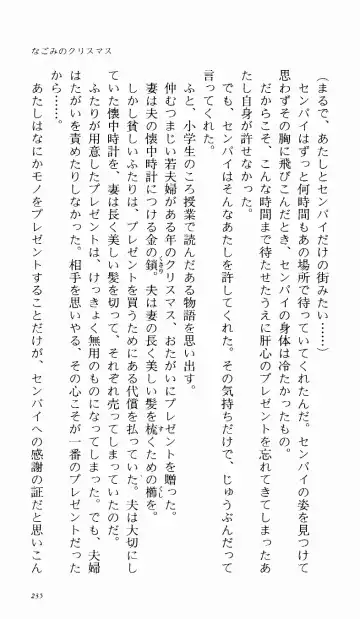 なごみのクリスマス
(まるで、あたしとセンパイだけの街みたい……)
センパイはずっと何時間もあの場所で待っていてくれたんだ。センパイの姿を見つけて
思わずその胸に飛びこんだとき、センパイの身体は冷たかったもの。
だからこそ、こんな時間まで待たせたうえに肝心のプレゼントを忘れてきてしまったあ
たし自身が許せなかった。
でも、センパイはそんなあたしを許してくれた。その気持ちだけで、じゅうぶんだって
言ってくれた。
ふと、小学生のころ授業で読んだある物語を思い出す。
仲むつまじい若夫婦がある年のクリスマス、おたがいにプレゼントを贈った。
妻は夫の懐中時計につける金の鎖。夫は妻の長く美しい髪を梳くための櫛を。
しかし貧しいふたりは、プレゼントを買うためにある代償を払っていた。夫は大切にし
ていた懐中時計を、妻は長く美しい髪を切って、それぞれ売ってしまっていたのだ。
ふたりが用意したプレゼントは、けっきょく無用のものになってしまった。でも、夫婦
はたがいを責めたりしなかった。相手を思いやる、その心こそが一番のプレゼントだった
から……。
あたしはなにかモノをプレゼントすることだけが、センパイへの感謝の証だと思いこん
235